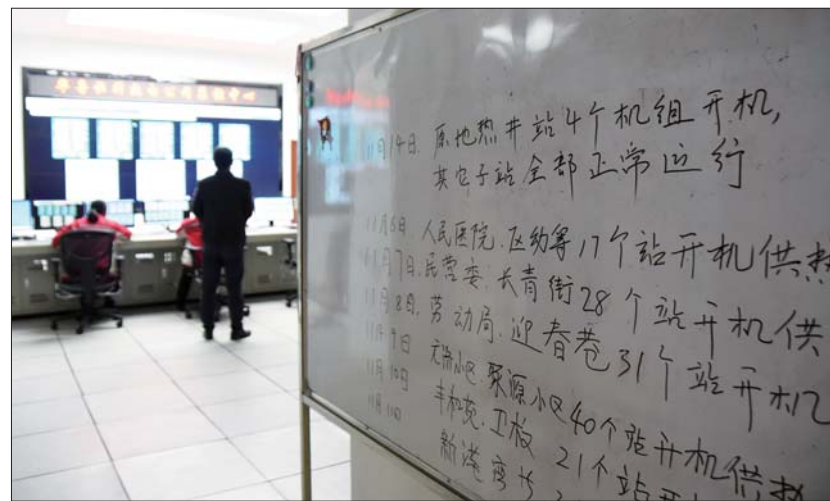 11月14日. 原地热井站4个机组开机,
其它子站全部正常运行
11月6日. 人民医院. 区幼等17个站开机供热
11月7日. 民营委. 长青街28个站开机供
11月8日. 劳动局. 迎春巷31个站开机
11月9日 小区. 聚源小区40个站开机供热
11月10日 丰和苑. 卫校 21个站
11月11日 新港湾